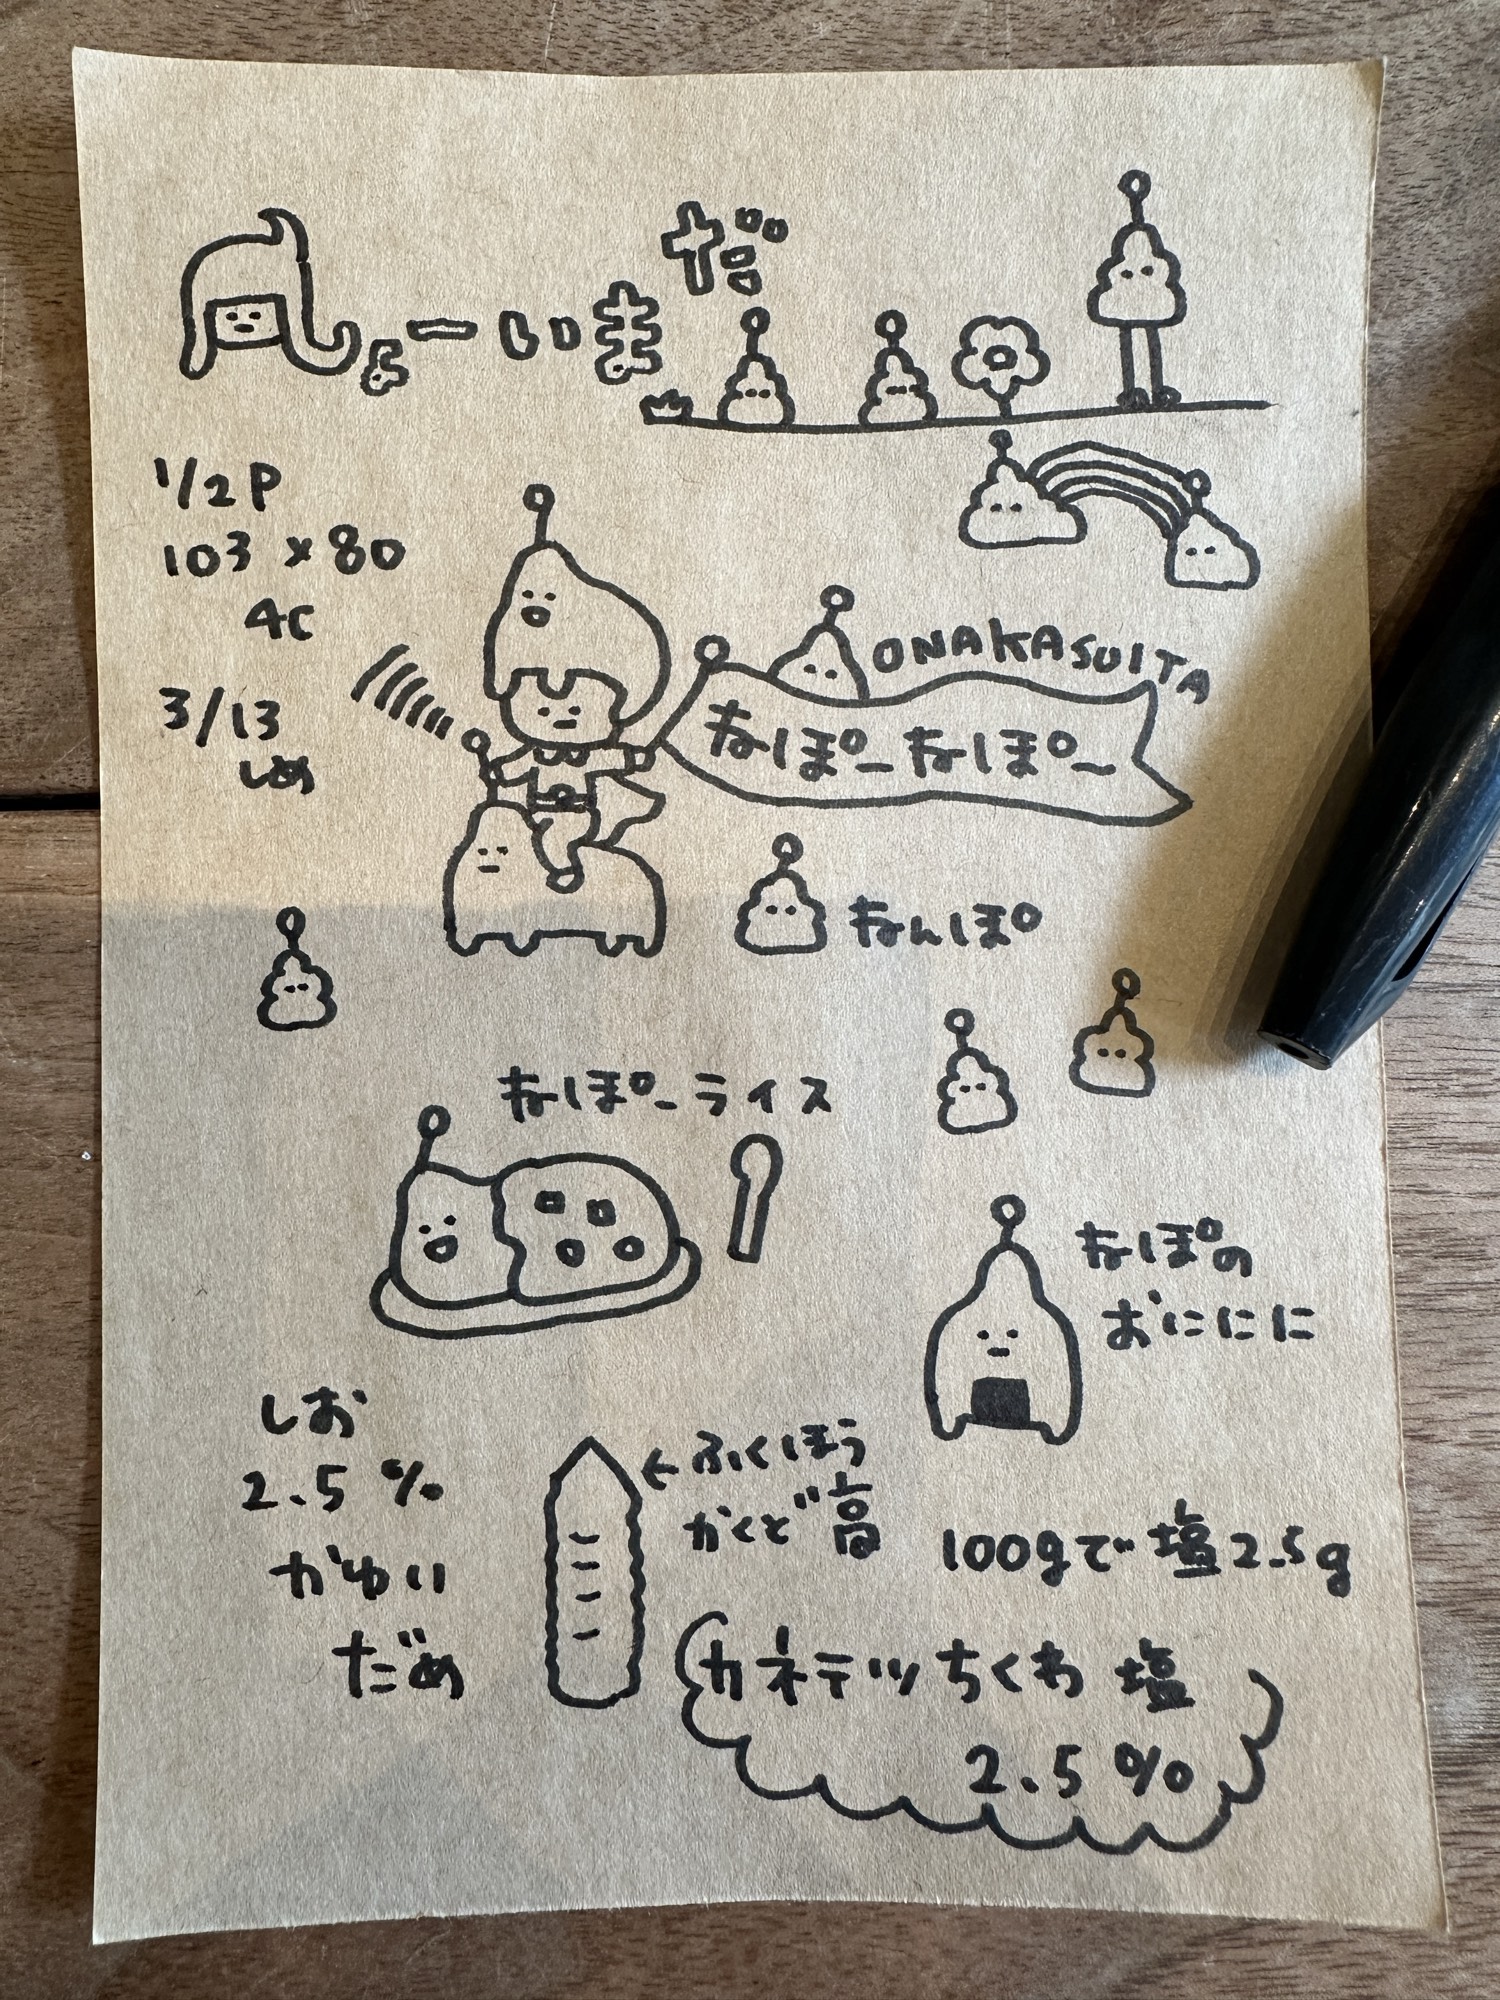 よーいまだ
1/2P
103×80
4C
3/13
しめ
ONAKASUITA
なぽーなぽー
なんぽ
なぽーライス
なぽの
おににに
しお
2.5%
かゆい
だめ
←ふくほう
かくど高
100gで塩2.5g
カネテツちくわ 塩
2.5%